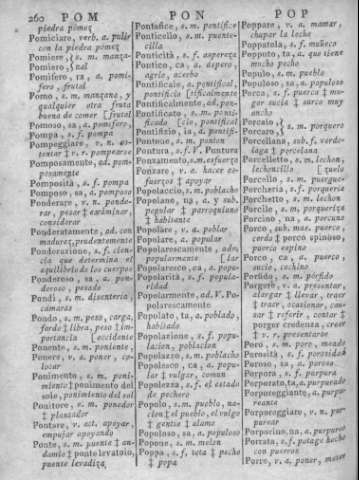 260 POM PON POP
piedra pómez
Pomiciare, verb. a. pulir
con la piedra pómez
Pomiere, } s. m. manza-
Pomiero, } nal
Pomifero, ra, a. pomi-
fero, frutal
Pomo, s. m. manzano, y
qualquier otra fruta
buena de comer [frutal
Pomoso, sa, a. pomifero,
Pompa, s. f. pompa
Pompeggiare, v. n. os-
tentar ‡ v. r. pomparse
Pomposamente, ad. pom-
posamente
Pomposità, s. f. pompa
Pomposo, sa, a. pomposo
Ponderare, v. n. ponde-
rar, pesar ‡ exâminar,
considerar
Ponderatamente, ad. con
madurez, prudentemente
Ponderazione, s. f. cien-
cia que determina el
equilibrio de los cuerpos
Ponderoso, sa, a. pon-
deroso, pesado
Pondi, s. m. disenteria,
cámaras
Pondo, s. m. peso, carga,
fardo ‡ libra, peso ‡ im-
portancia [occidente
Ponente, s. m. poniente,
Ponere, v. a. poner, co-
locar
Ponimento, s. m. poni-
miento ‡ ponimento del
sole, ponimiento del sol
Ponitore, s. m. ponedor
‡ plantador
Pontare, v. act. apoyar,
empujar apoyando
Ponte, s. m. puente ‡ an-
damio ‡ ponte levatoio,
puente levadiza
Pontefice, s. m. pontifice
Ponticello, s. m. puente-
cilla
Ponticità, s. f. aspereza
Pontico, ca, a. áspero,
agrio, acerbo
Pontificale, a. pontifical,
pontificio [tificalmente
Pontificalmente, ad. pon-
Pontificato, s. m. ponti-
ficado [cio, pontifical
Pontifizio, ia, a. pontifi-
Pontone, s. m. ponton
Pontura, s. f. V. Puntura
Ponzamento, s. m. esfuerzo
Ponzare, v. a. hacer es-
fuerzos ‡ apoyar
Popolaccio, s. m. poblacho
Popolano, na, a. y sub.
popular ‡ parroquiano
‡ habitante
Popolare, v. a. poblar
Popolare, a. popular
Popolarescamente, adv.
popularmente [lar
Popolaresco, ca, a. popu-
Popolarità, s. f. popula-
ridad
Popolarmente, ad. V. Po-
polarescamente
Popolato, ta, a. poblado,
habitado
Popolazione, s. f. popu-
lacion, poblacion
Popolazzo, s. m. poblacho
Popolesco, ca, a. popu-
lar ‡ vulgar, comun
Popolezza, s. f. el estado
de pechero
Popolo, s. m. pueblo, na-
cion ‡ el pueblo, el vulgo
‡ gentio ‡ alamo
Popoloso, sa, a. populoso
Popone, s. m. melon
Poppa, s. f. teta ‡ pecho
‡ popa
Poppare, v. a. mamar,
chupar la leche
Poppatola, s. f. muñeca
Popputo, ta, a. que tiene
mucho pecho
Populo, s. m. pueblo
Populoso, sa, a. populoso
Porca, s. f. puerca ‡ mu-
ger sucia ‡ surco muy
ancho
Porcaio, } s. m. porquero
Porcaro, }
Porcellana, sub. f. verdo-
laga ‡ porcelana
Porcelletto, s. m. lechon,
lechoncillo [quelo
Porcello, s. m. puerque-
Porcheria, s. f. porqueria
Porchetto, s. m. lechon
Porcile, s. m. porqueriza
Porcino, na, a. porcuno
Porco, sub. mas. puerco,
cerdo ‡ porco spinoso,
puerco espino
Porco, ca, a. puerco,
sucio, cochino
Porfido, s. m. pórfido
Porgere, v. a. presentar,
alargar ‡ llevar, traer
‡ tracr, ocasionar, cau-
sar ‡ referir, contar ‡
porger credenza, creer
‡ v. r. presentarse
Poro, s. m. poro, meado
Porosità, s. f. porosidad
Poroso, sa, a. poroso
Porpora, s. f. purpura
Porporato, ta, a. purpurado
Porporeggiante, a. purpu-
reante
Porporeggiare, v. n. pur-
purear
Porporino, na, a. purpureo
Porrata, s. f. potage hecho
con puerros
Porre, v. a. poner, meter